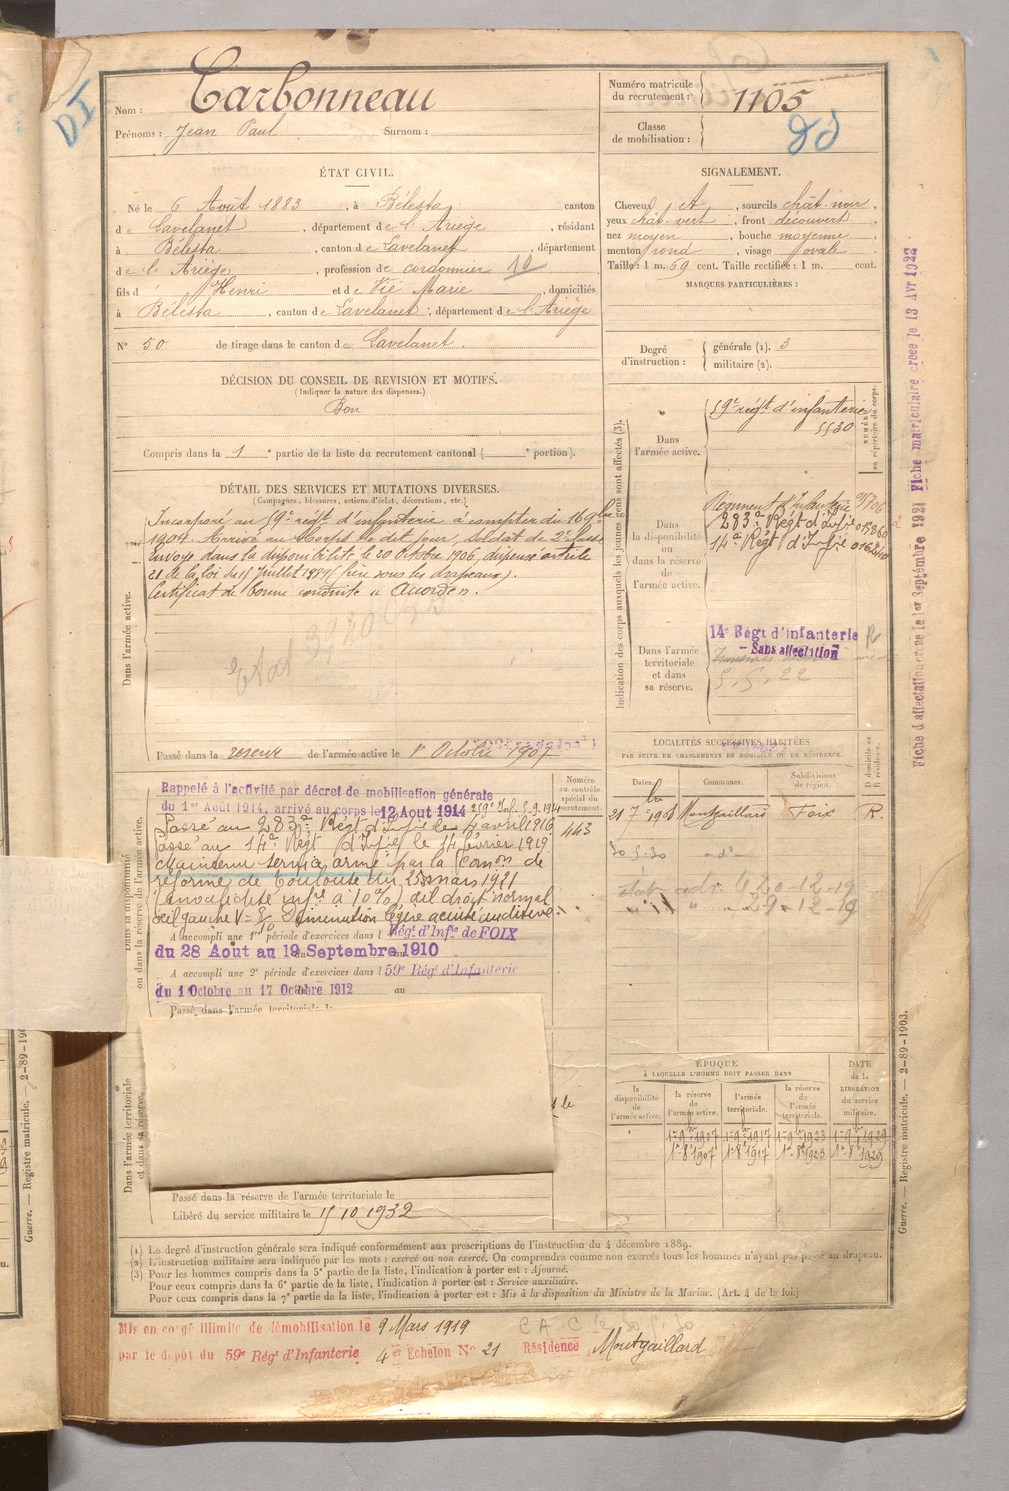 Nom : Carbonneau
Prénoms : Jean Paul Surnom :
Numéro matricule
du recrutement : 1105
Classe
de mobilisation :
ÉTAT CIVIL.
Né le 6 Août 1883, à Bélesta, canton
de Lavelanet, département de l'Ariège, résidant
à Bélesta, canton de Lavelanet, département
de l'Ariège, profession de cordonnier 10
fils d Henri et de Vié Marie, domiciliés
à Bélesta, canton de Lavelanet, département de l'Ariège
N° 50 de tirage dans le canton de Lavelanet.
SIGNALEMENT.
Cheveux et, sourcils chat-noir,
yeux chat. vert, front découvert
nez moyen, bouche moyenne
menton rond, visage ovale
Taille : 1 m. 69 cent. Taille rectifiée : 1 m. cent.
MARQUES PARTICULIÈRES :
Degré
d'instruction :
générale (1). 3
militaire (2).
DÉCISION DU CONSEIL DE REVISION ET MOTIFS.
(Indiquer la nature des dispenses.)
Bon
Compris dans la 1e partie de la liste du recrutement cantonal ( e portion).
DÉTAIL DES SERVICES ET MUTATIONS DIVERSES.
(Campagnes, blessures, actions d'éclat, décorations, etc.)
Dans l'armée active.
Incorporé au 59e régt d'infanterie à compter du 16 9bre
1904. Arrivé au Corps le dit jour, soldat de 2e classe
Envoyé dans la disponibilité le 20 Octobre 1906, dispensé article
21 de la loi du 15 Juillet 1889 (frère sous les drapeaux).
Certificat de bonne conduite "Accordé".
Passé dans la réserve de l'armée active le 1er Octobre 1907
Indication des corps auxquels les jeunes gens sont affectés (3).
Dans
l'armée active.
59e régt d'infanterie
5530
NUMÉRO
au répertoire du corps.
Dans
la disponibilité
ou dans la réserve
de
l'armée active.
Régiment d'Infanterie
283e Régt d'Infie
14e Régt d'Infie
Dans l'armée
territoriale
et dans
sa réserve.
14e Régt d'Infanterie
- Sans affectation
5, 5, 22
R
LOCALITÉS SUCCESSIVES HABITÉES
PAR SUITE DE CHANGEMENTS DE DOMICILE OU DE RÉSIDENCE.
Dates. Communes. Subdivisions
de région. D domicile ou
R résidence.
21 7bre 1908 Montgaillard Foix R.
20-12-19
29-12-19
Dans la disponibilité
ou dans la réserve de l'armée active.
Numéro
au contrôle
spécial du
recrutement.
443
Rappelé à l'activité par décret de mobilisation générale
du 1er Août 1914, arrivé au corps le 12 Aout 1914
Passé au 283e Régt d'Infie le 4 avril 1916
Passé au 14e Régt d'Infie le 14 février 1919
Maintenu service armé par la Con de
réforme de Toulouse du 23 mars 1921
Invalidité infre à 10%, œil droit normal
œil gauche V = Diminution légère acuité auditive
A accompli une 1re période d'exercices dans l Régt d'Infie de FOIX
du 28 Août au 19 Septembre 1910
A accompli une 2e période d'exercices dans l 59e Régt d'Infanterie
du 1 Octobre au 17 Octobre 1912 au
Passé dans l'armée territoriale le
ÉPOQUE
À LAQUELLE L'HOMME DOIT PASSER DANS
la
disponibilité
de
l'armée active.
la réserve
de
l'armée active.
l'armée
territoriale.
la réserve
de
l'armée
territoriale.
DATE
de la
LIBÉRATION
du service
militaire.
1er 8bre 1907 1er 8bre 1917 1er 8bre 1923 1er 8bre 1929
Dans l'armée territoriale
et dans sa réserve.
Passé dans la réserve de l'armée territoriale le
Libéré du service militaire le 15 10 1932
(1) Le degré d'instruction générale sera indiqué conformément aux prescriptions de l'instruction du 4 décembre 1889.
(2) L'instruction militaire sera indiquée par les mots : exercé ou non exercé. On comprendra comme non exercés tous les hommes n'ayant pas passé au drapeau.
(3) Pour les hommes compris dans la 5e partie de la liste, l'indication à porter est : Ajourné.
Pour ceux compris dans la 6e partie de la liste, l'indication à porter est : Service auxiliaire.
Pour ceux compris dans la 7e partie de la liste, l'indication à porter est : Mis à la disposition du Ministre de la Marine. (Art. 4 de la loi.)
Mis en congé illimité de démobilisation le 9 Mars 1919
par le dépôt du 59e Régt d'Infanterie 4er Echelon N° 21 Résidence Montgaillard
Guerre. — Registre matricule. — 2-89-1903.
Fiche d'affectation créée le 1er Septembre 1921 Fiche matriculaire créée le 13 Avr 1922